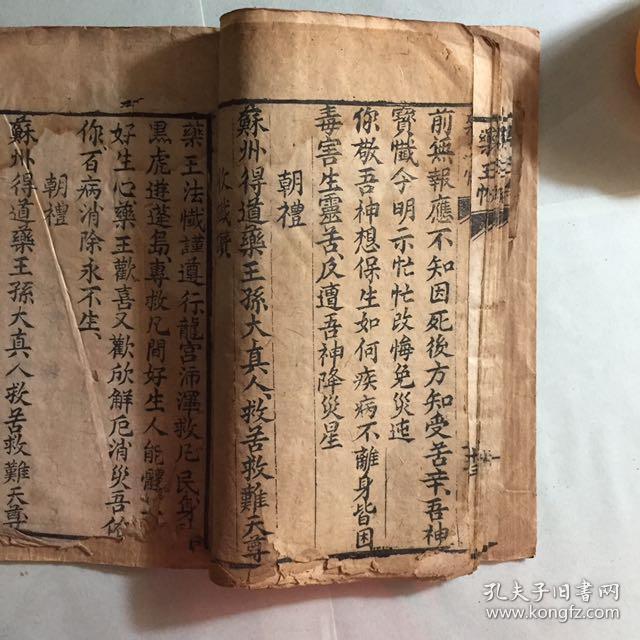 藥王
前無報應不知因死後方知受苦辛吾神
寳懺今明示忙忙改悔免災迍
你敬吾神想保生如何疾病不離身皆因
毒害生靈苦反遭吾神降災星
朝禮
蘇州得道藥王孫大真人救苦救難天尊
藥王法懺謹遵行龍宮沛澤救凡民身
黑虎遊蓬島專救凡間好生人能體
好生心藥王歡喜又歡欣解厄消災吾佑
你百病消除永不生
朝禮
蘇州得道藥王孫大真人救苦救難天尊
孔夫子旧书网
www.kongfz.com